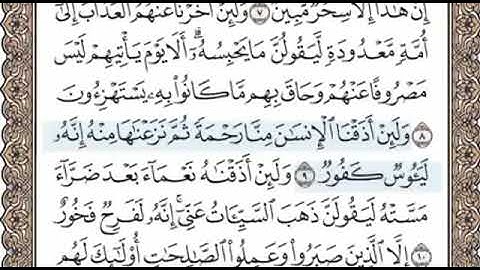 إِنْ هَٰذَا إِلَّا سِحْرٌ مُّبِينٌ ٧ وَلَئِنْ أَخَّرْنَا عَنْهُمُ الْعَذَابَ إِلَىٰ
أُمَّةٍ مَّعْدُودَةٍ لَّيَقُولُنَّ مَا يَحْبِسُهُۥٓ ۗ أَلَا يَوْمَ يَأْتِيهِمْ لَيْسَ
مَصْرُوفًا عَنْهُمْ وَحَاقَ بِهِم مَّا كَانُوا۟ بِهِۦ يَسْتَهْزِءُونَ
٨ وَلَئِنْ أَذَقْنَا الْإِنسَٰنَ مِنَّا رَحْمَةً ثُمَّ نَزَعْنَٰهَا مِنْهُ إِنَّهُۥ
لَيَـُٔوسٌ كَفُورٌ ٩ وَلَئِنْ أَذَقْنَٰهُ نَعْمَآءَ بَعْدَ ضَرَّآءَ
مَسَّتْهُ لَيَقُولَنَّ ذَهَبَ السَّيِّـَٔاتُ عَنِّىٓ ۚ إِنَّهُۥ لَفَرِحٌ فَخُورٌ
١٠ إِلَّا الَّذِينَ صَبَرُوا۟ وَعَمِلُوا۟ الصَّٰلِحَٰتِ أُو۟لَٰٓئِكَ لَهُم